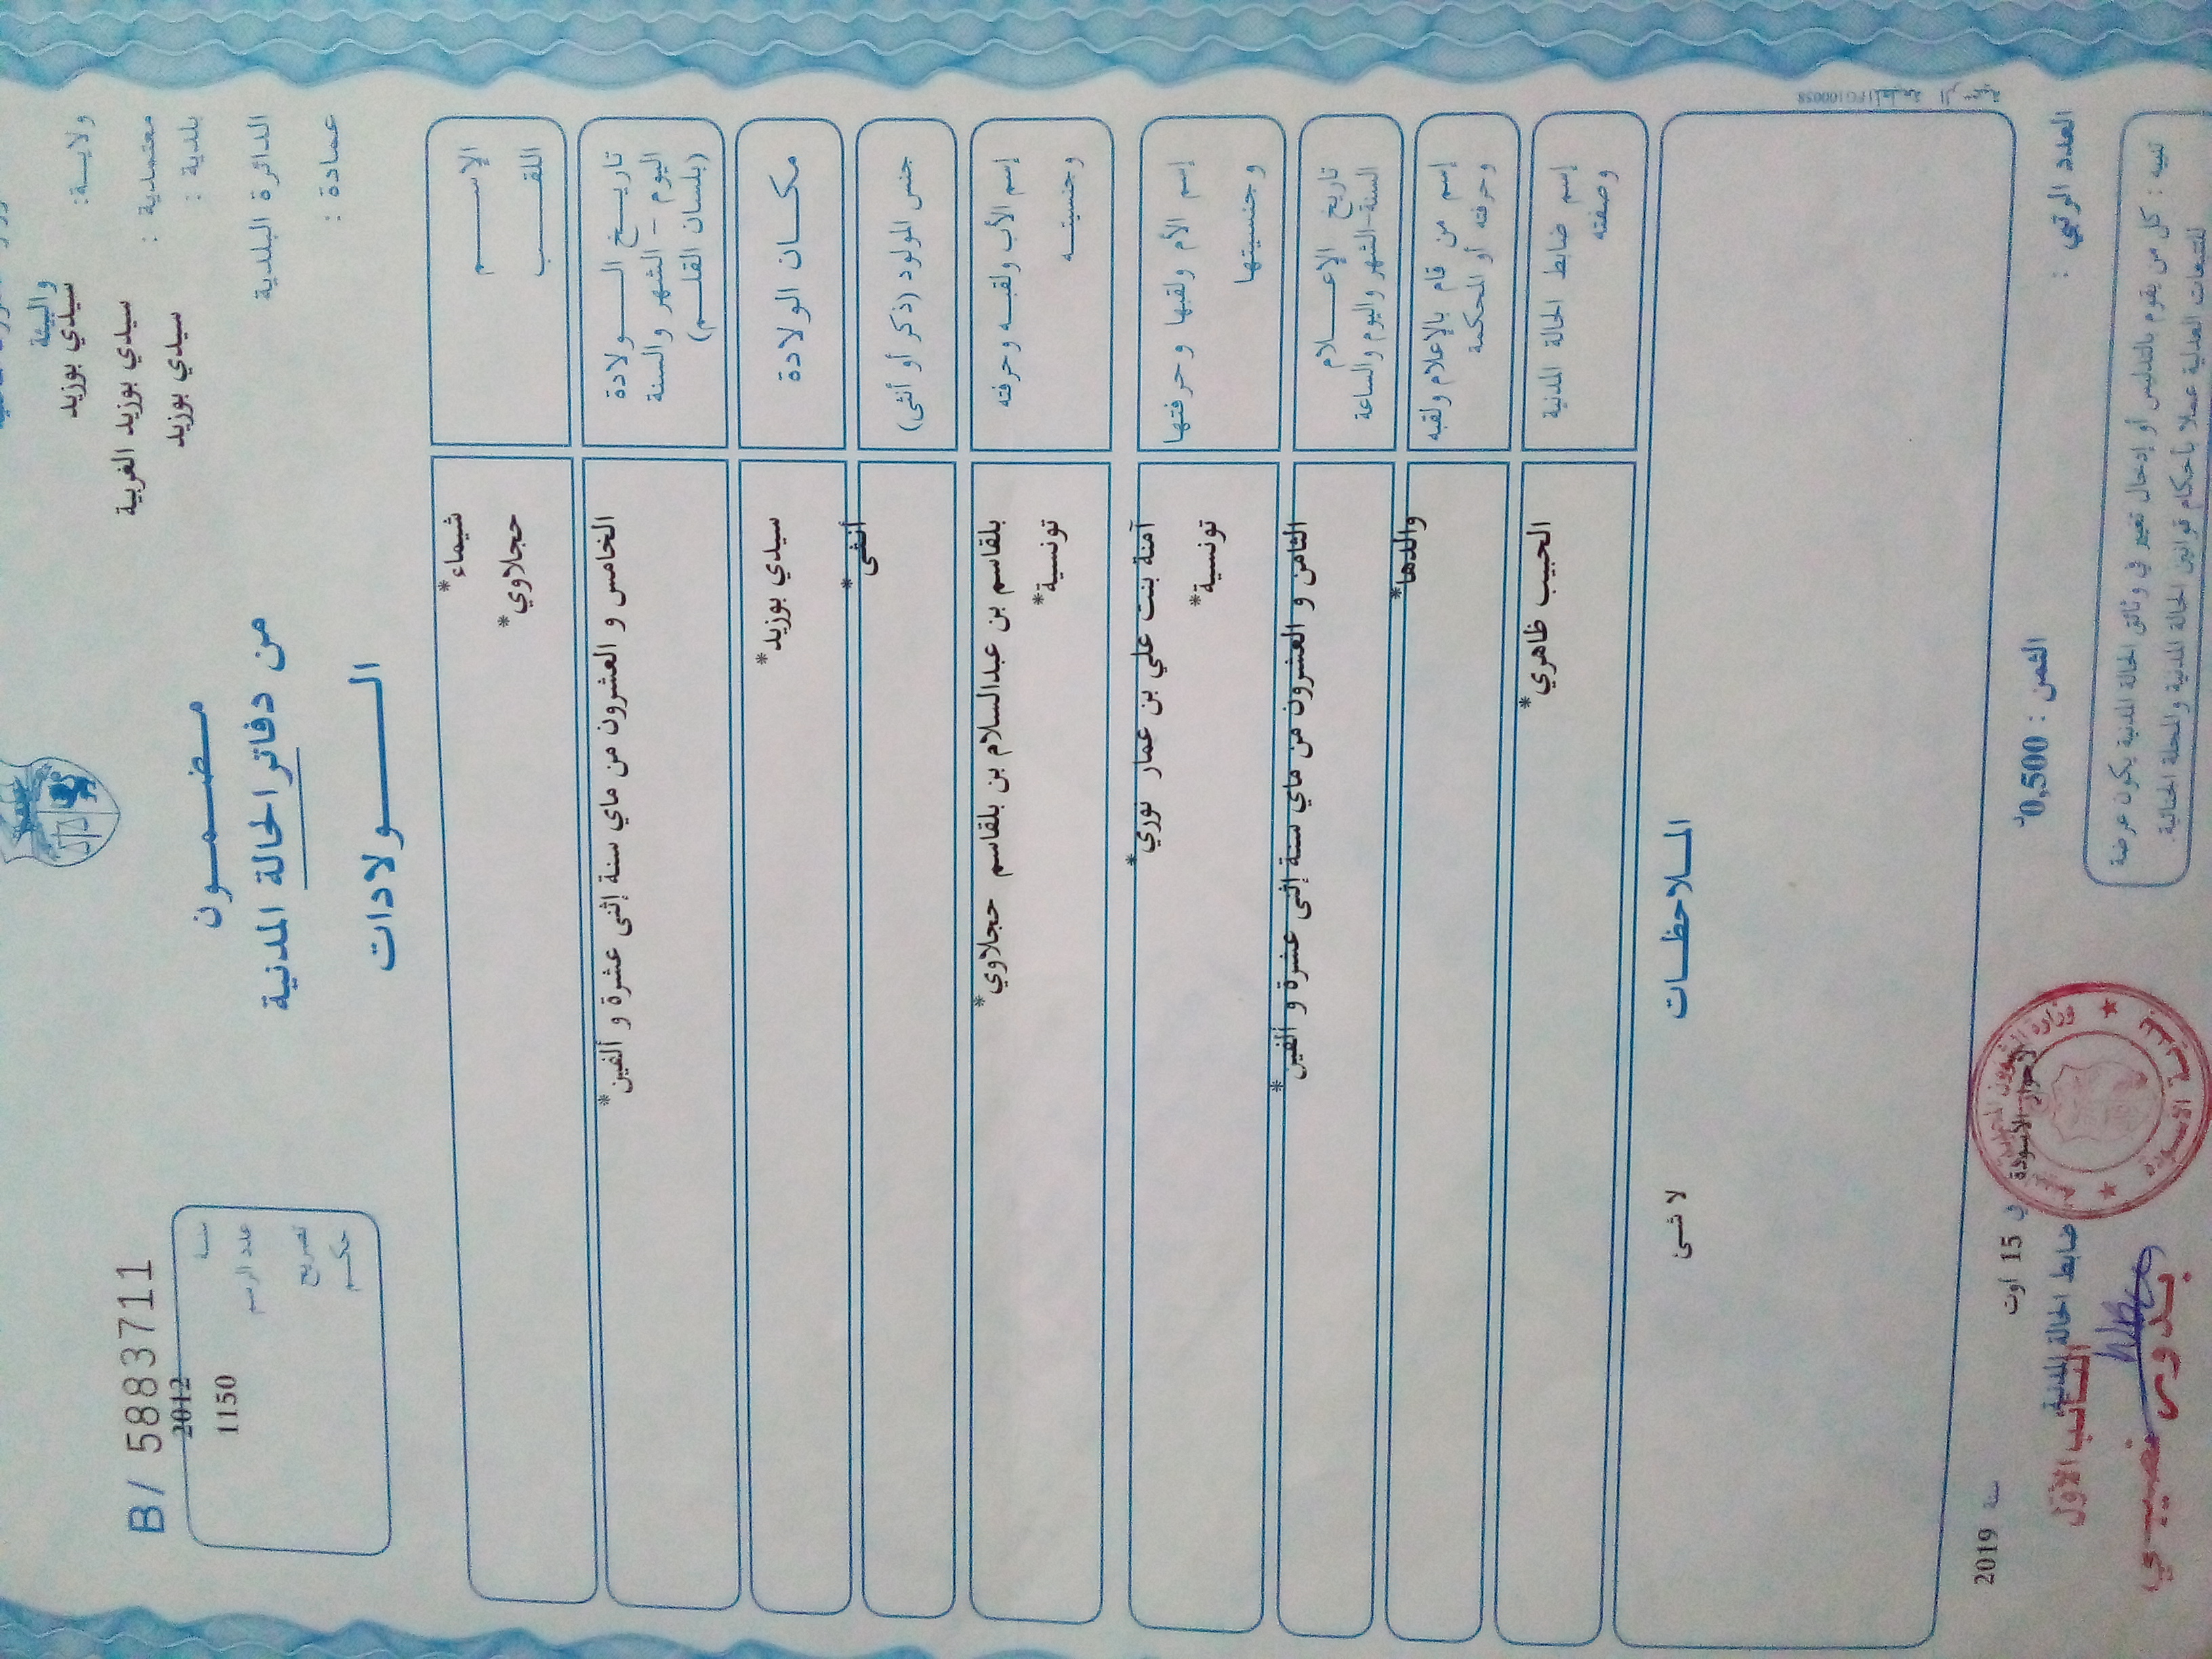 والبيئة
ولايــة: سيدي بوزيد
معتمدية : سيدي بوزيد الغربية
بلدية : سيدي بوزيد
الدائرة البلدية
عمادة :
B/ 5883711
سنة 2012
عدد الرسم 1150
تصريح
حكم
مضمون
من دفاتر الحالة المدنية
الــولادات
الإســم شيماء*
اللقــب حجلاوي*
تاريــخ الــولادة الخامس و العشرون من ماي سنة إثنى عشرة و ألفين*
اليوم - الشهر والسنة
(بلسان القلــم)
مكــان الولادة سيدي بوزيد*
جنس المولود (ذكر أو أنثى) أنثى*
إسم الأب ولقبــه وحرفته بلقاسم بن عبدالسلام بن بلقاسم حجلاوي*
وجنسيتــه تونسية*
إسم الأم ولقبها وحرفتها آمنة بنت علي بن عمار نوري*
وجنسيتها تونسية*
تاريخ الإعــلام الثامن و العشرون من ماي سنة إثنى عشرة و ألفين*
السنة-الشهر واليوم والساعة
إسم من قام بالإعلام ولقبه والدها*
وحرفته أو المحكمة
إسم ضابط الحالة المدنية الحبيب ظاهري*
وصفته
المــلاحظــات
لا شئ
العدد الرتبي :
الثمن : 0,500د
في 15 اوت سنة 2019
ضابط الحالة المدنية
النائب الأول
تنبيه : كل من يقوم بالتدليس أو إدخال تغيير في وثائق الحالة المدنية يكون عرضة
للتتبعات العدلية عملا بأحكام قوانين الحالة المدنية والمجلة الجنائية.